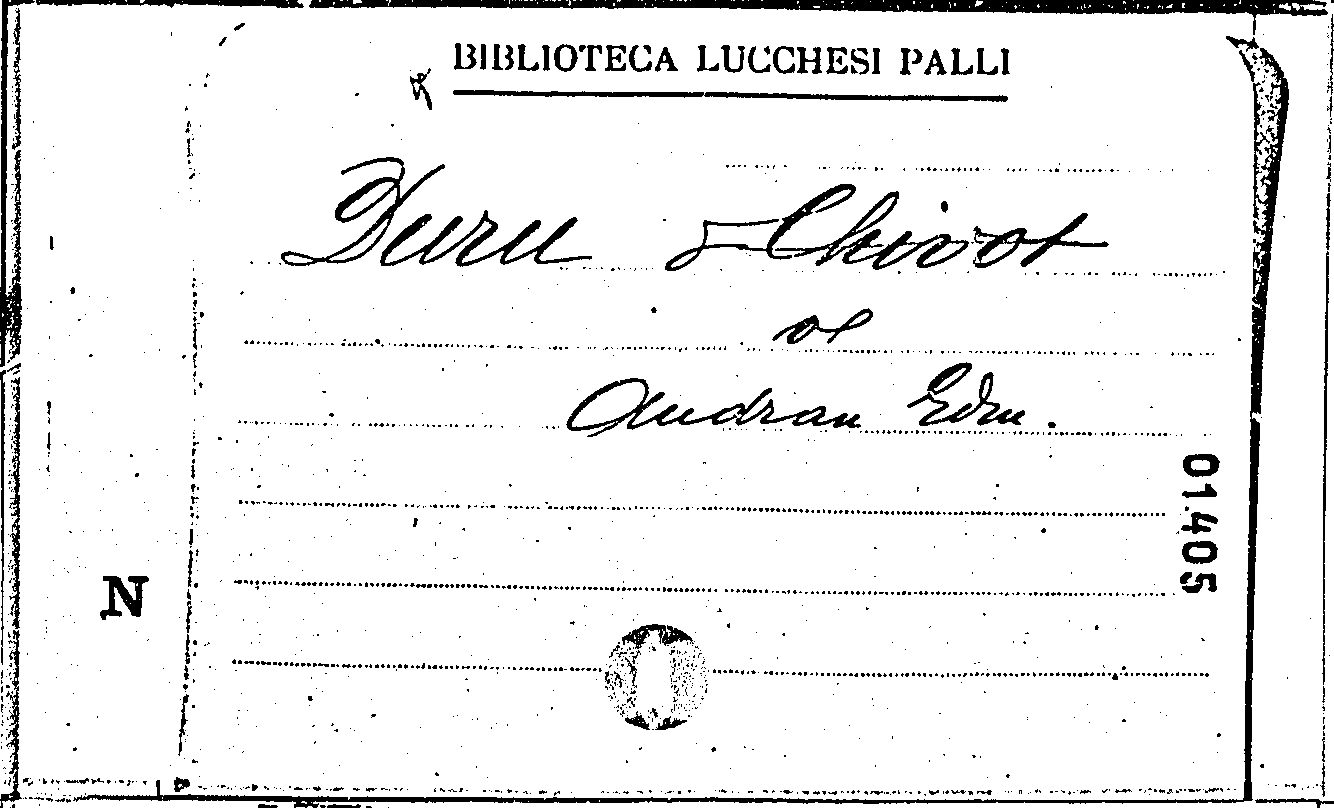 BIBLIOTECA LUCCHESI PALLI
Duru & Chivot
e
Audran Edm.
01405
N